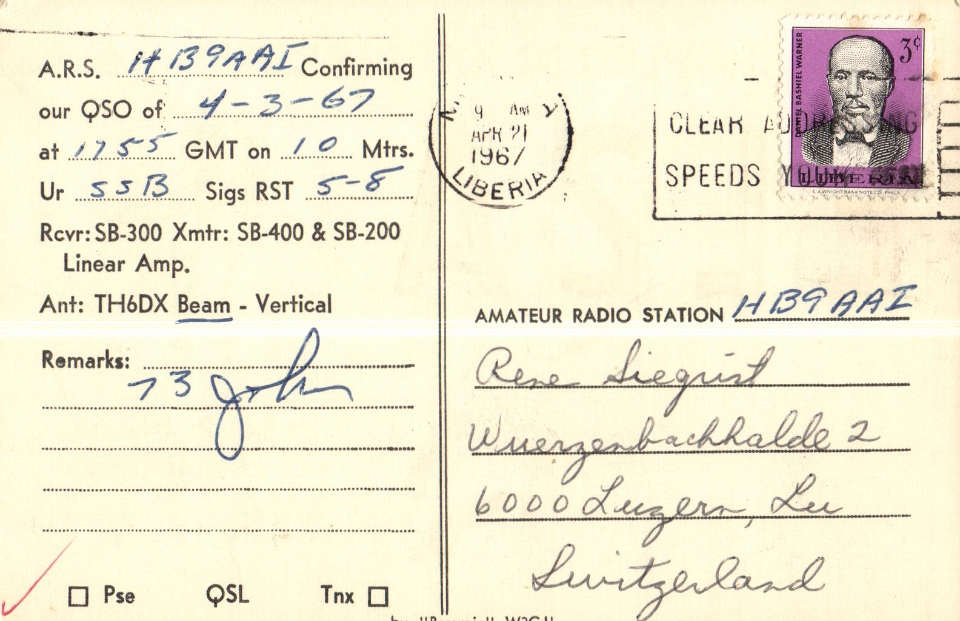 A.R.S. HB9AAI Confirming
our QSO of 4-3-67
at 1755 GMT on 10 Mtrs.
Ur SSB Sigs RST 5-8
Rcvr: SB-300 Xmtr: SB-400 & SB-200
Linear Amp.
Ant: TH6DX Beam - Vertical
Remarks:
73 John
Pse QSL Tnx
9 AM
APR 21
1967
LIBERIA
CLEAR ADDRESSING
SPEEDS
DANIEL BASHIEL WARNER
3¢
LIBERIA
AMATEUR RADIO STATION HB9AAI
Rene Siegrist
Wuerzenbachhalde 2
6000 Luzern, Lu
Switzerland